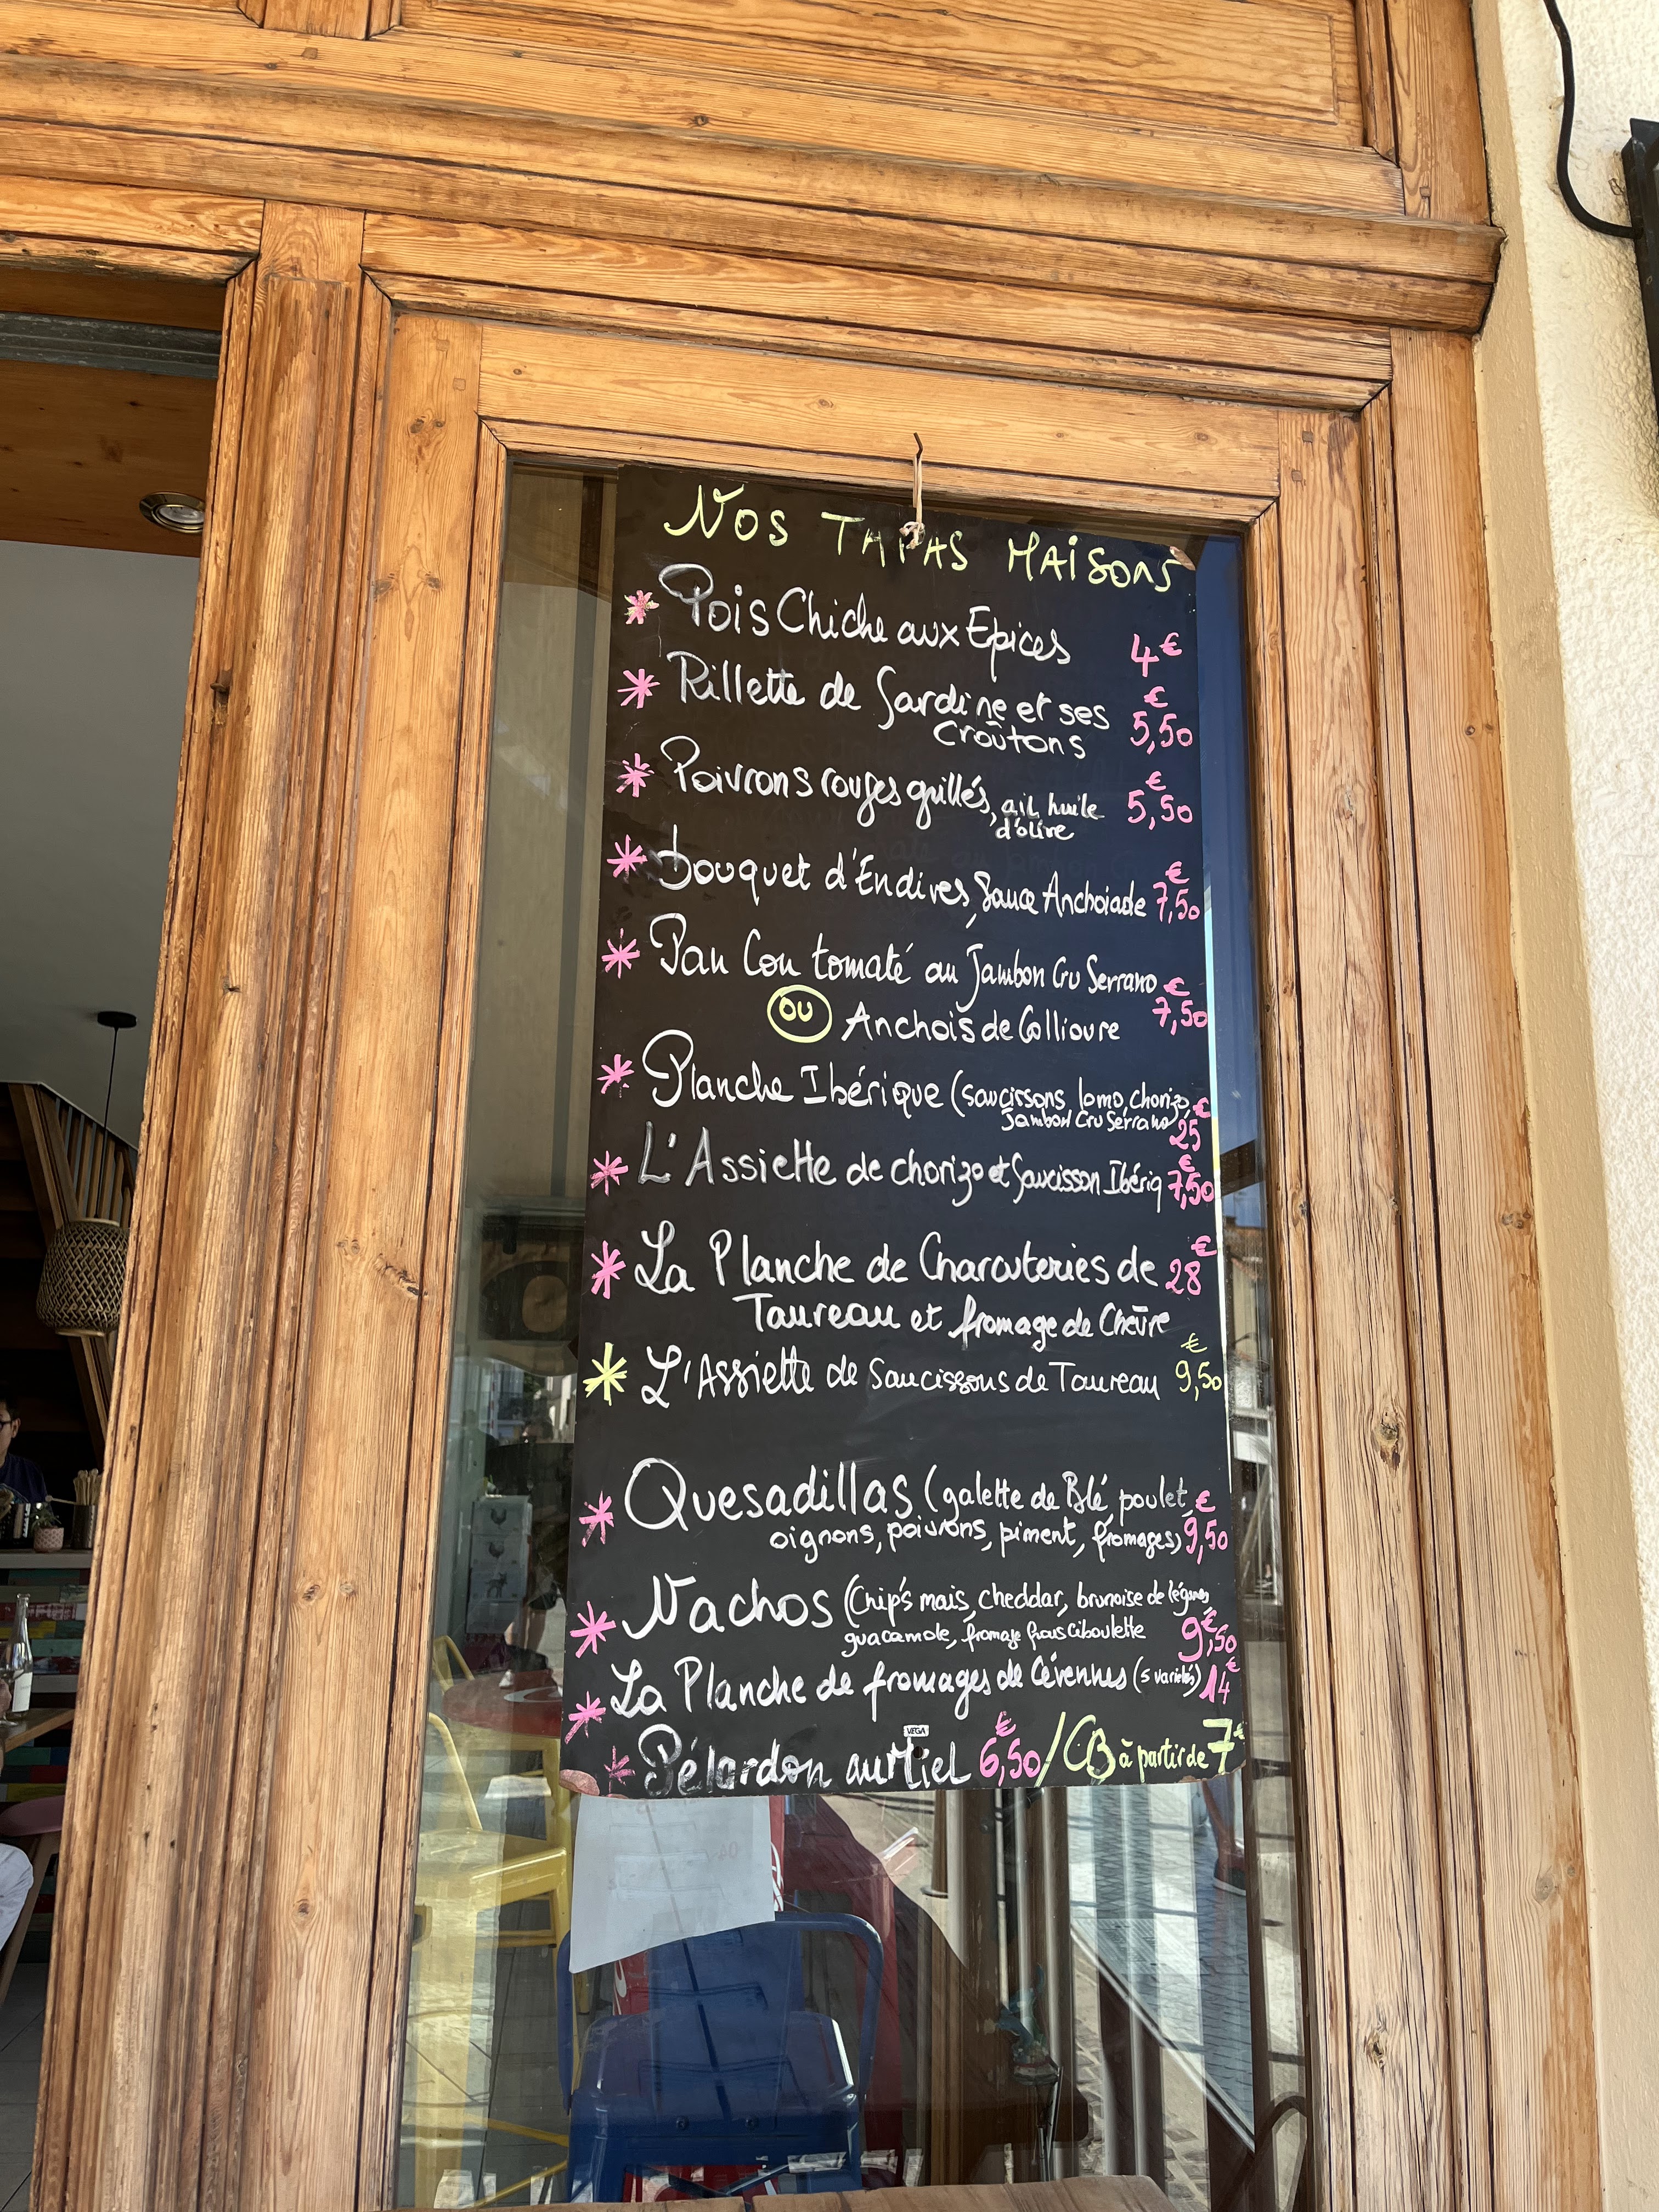 Nos TAPAS MAisons
* Pois Chiche aux Epices 4€
* Rillette de Sardine et ses 5,50€
Croûtons
* Poivrons rouges grillés, ail huile 5,50€
d'olive
* bouquet d'Endives, Sauce Anchoiade 7,50€
* Pan Con tomaté au Jambon Cru Serrano 7,50€
OU Anchois de Collioure
* Planche Ibérique (saucissons, lomo, chorizo,
Jambon Cru Serrano) 25€
* L'Assiette de chorizo et Saucisson Ibériq 7,50€
* La Planche de Charcuteries de 28€
Taureau et fromage de Chèvre
* L'Assiette de Saucissons de Taureau 9,50€
* Quesadillas (galette de Blé, poulet,
oignons, poivrons, piment, fromages) 9,50€
* Nachos (Chip's mais, cheddar, brunoise de légumes,
guacamole, fromage frais ciboulette 9,50€
* La Planche de fromages de Cévennes (5 variétés) 14€
VEGA
* Pélardon au Miel 6,50€ / CB à partir de 7€